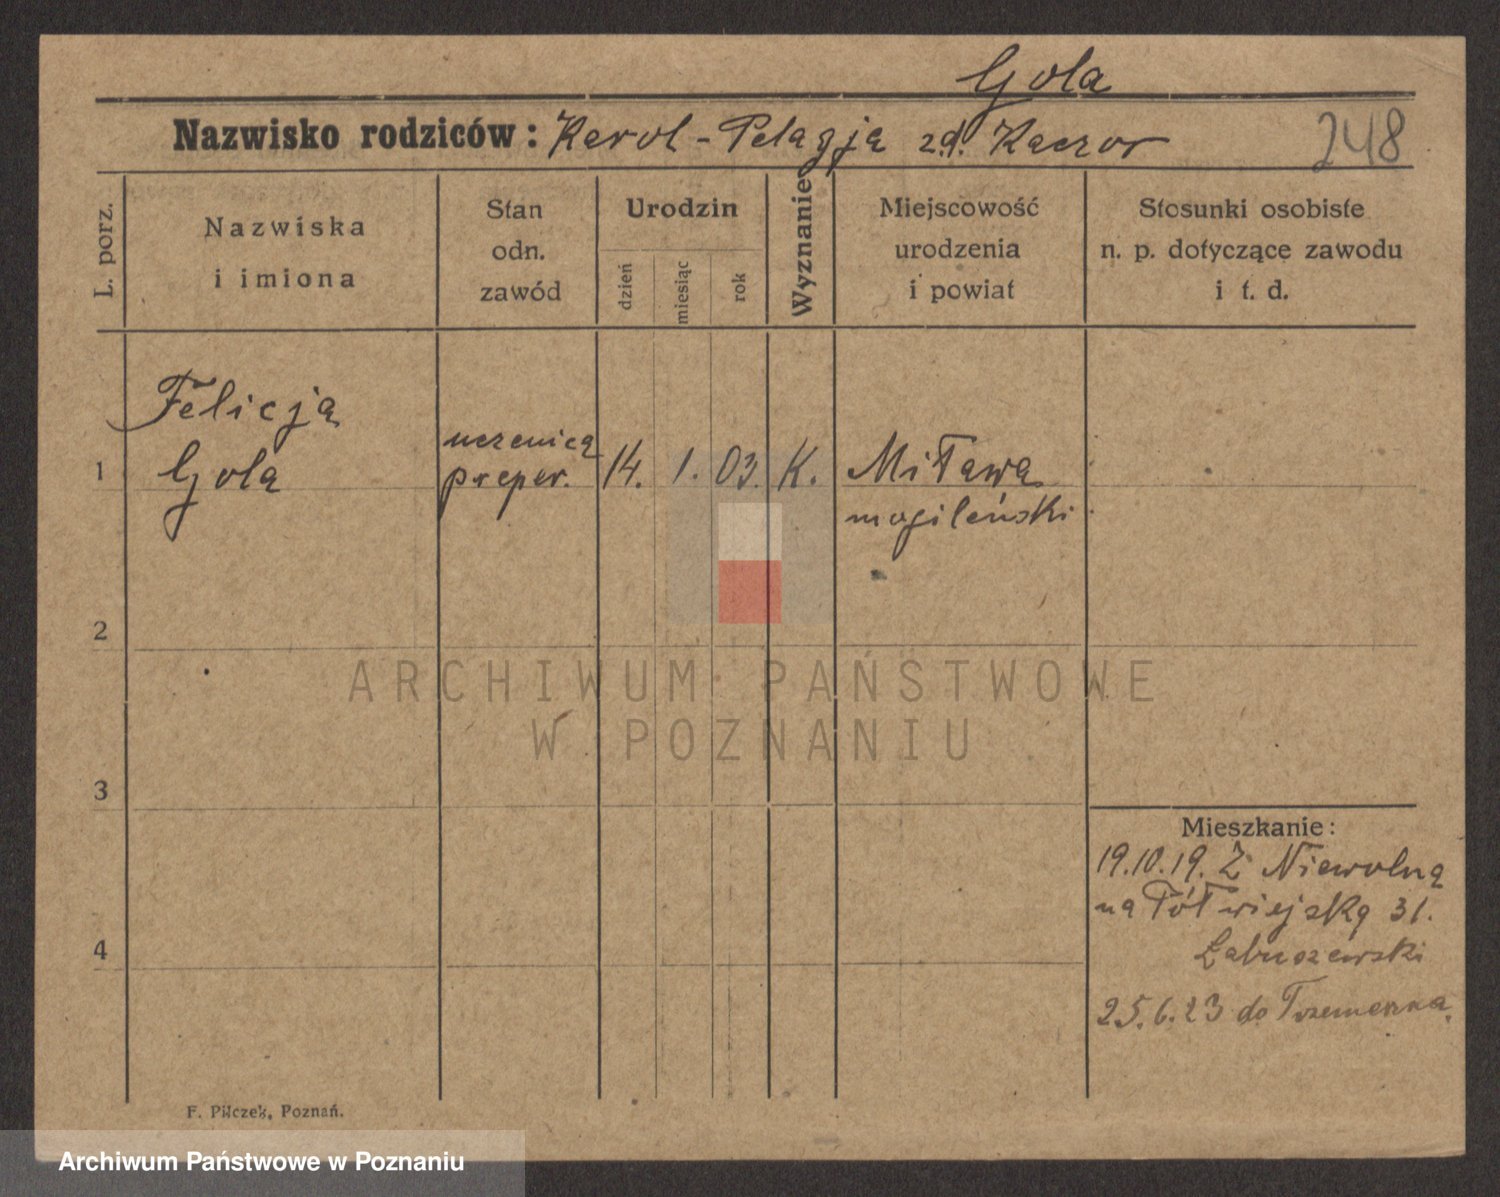 Gola
Nazwisko rodziców: Karol - Pelagja zd. Kaczor
248
L. porz.
Nazwiska
i imiona
Stan
odn.
zawód
Urodzin
dzień
miesiąc
rok
Wyznanie
Miejscowość
urodzenia
i powiat
Stosunki osobiste
n. p. dotyczące zawodu
i t. d.
Felicja
1 Gola
uczenica
preper.
14. 1. 03. K.
Miława
mogileński
2
ARCHIWUM PAŃSTWOWE
W POZNANIU
3
Mieszkanie:
19.10.19. Z Niewolna
na Półwiejską 31.
Łabuszewski
4
25.6.23 do Trzemeszna.
F. Pilczek, Poznań.
Archiwum Państwowe w Poznaniu